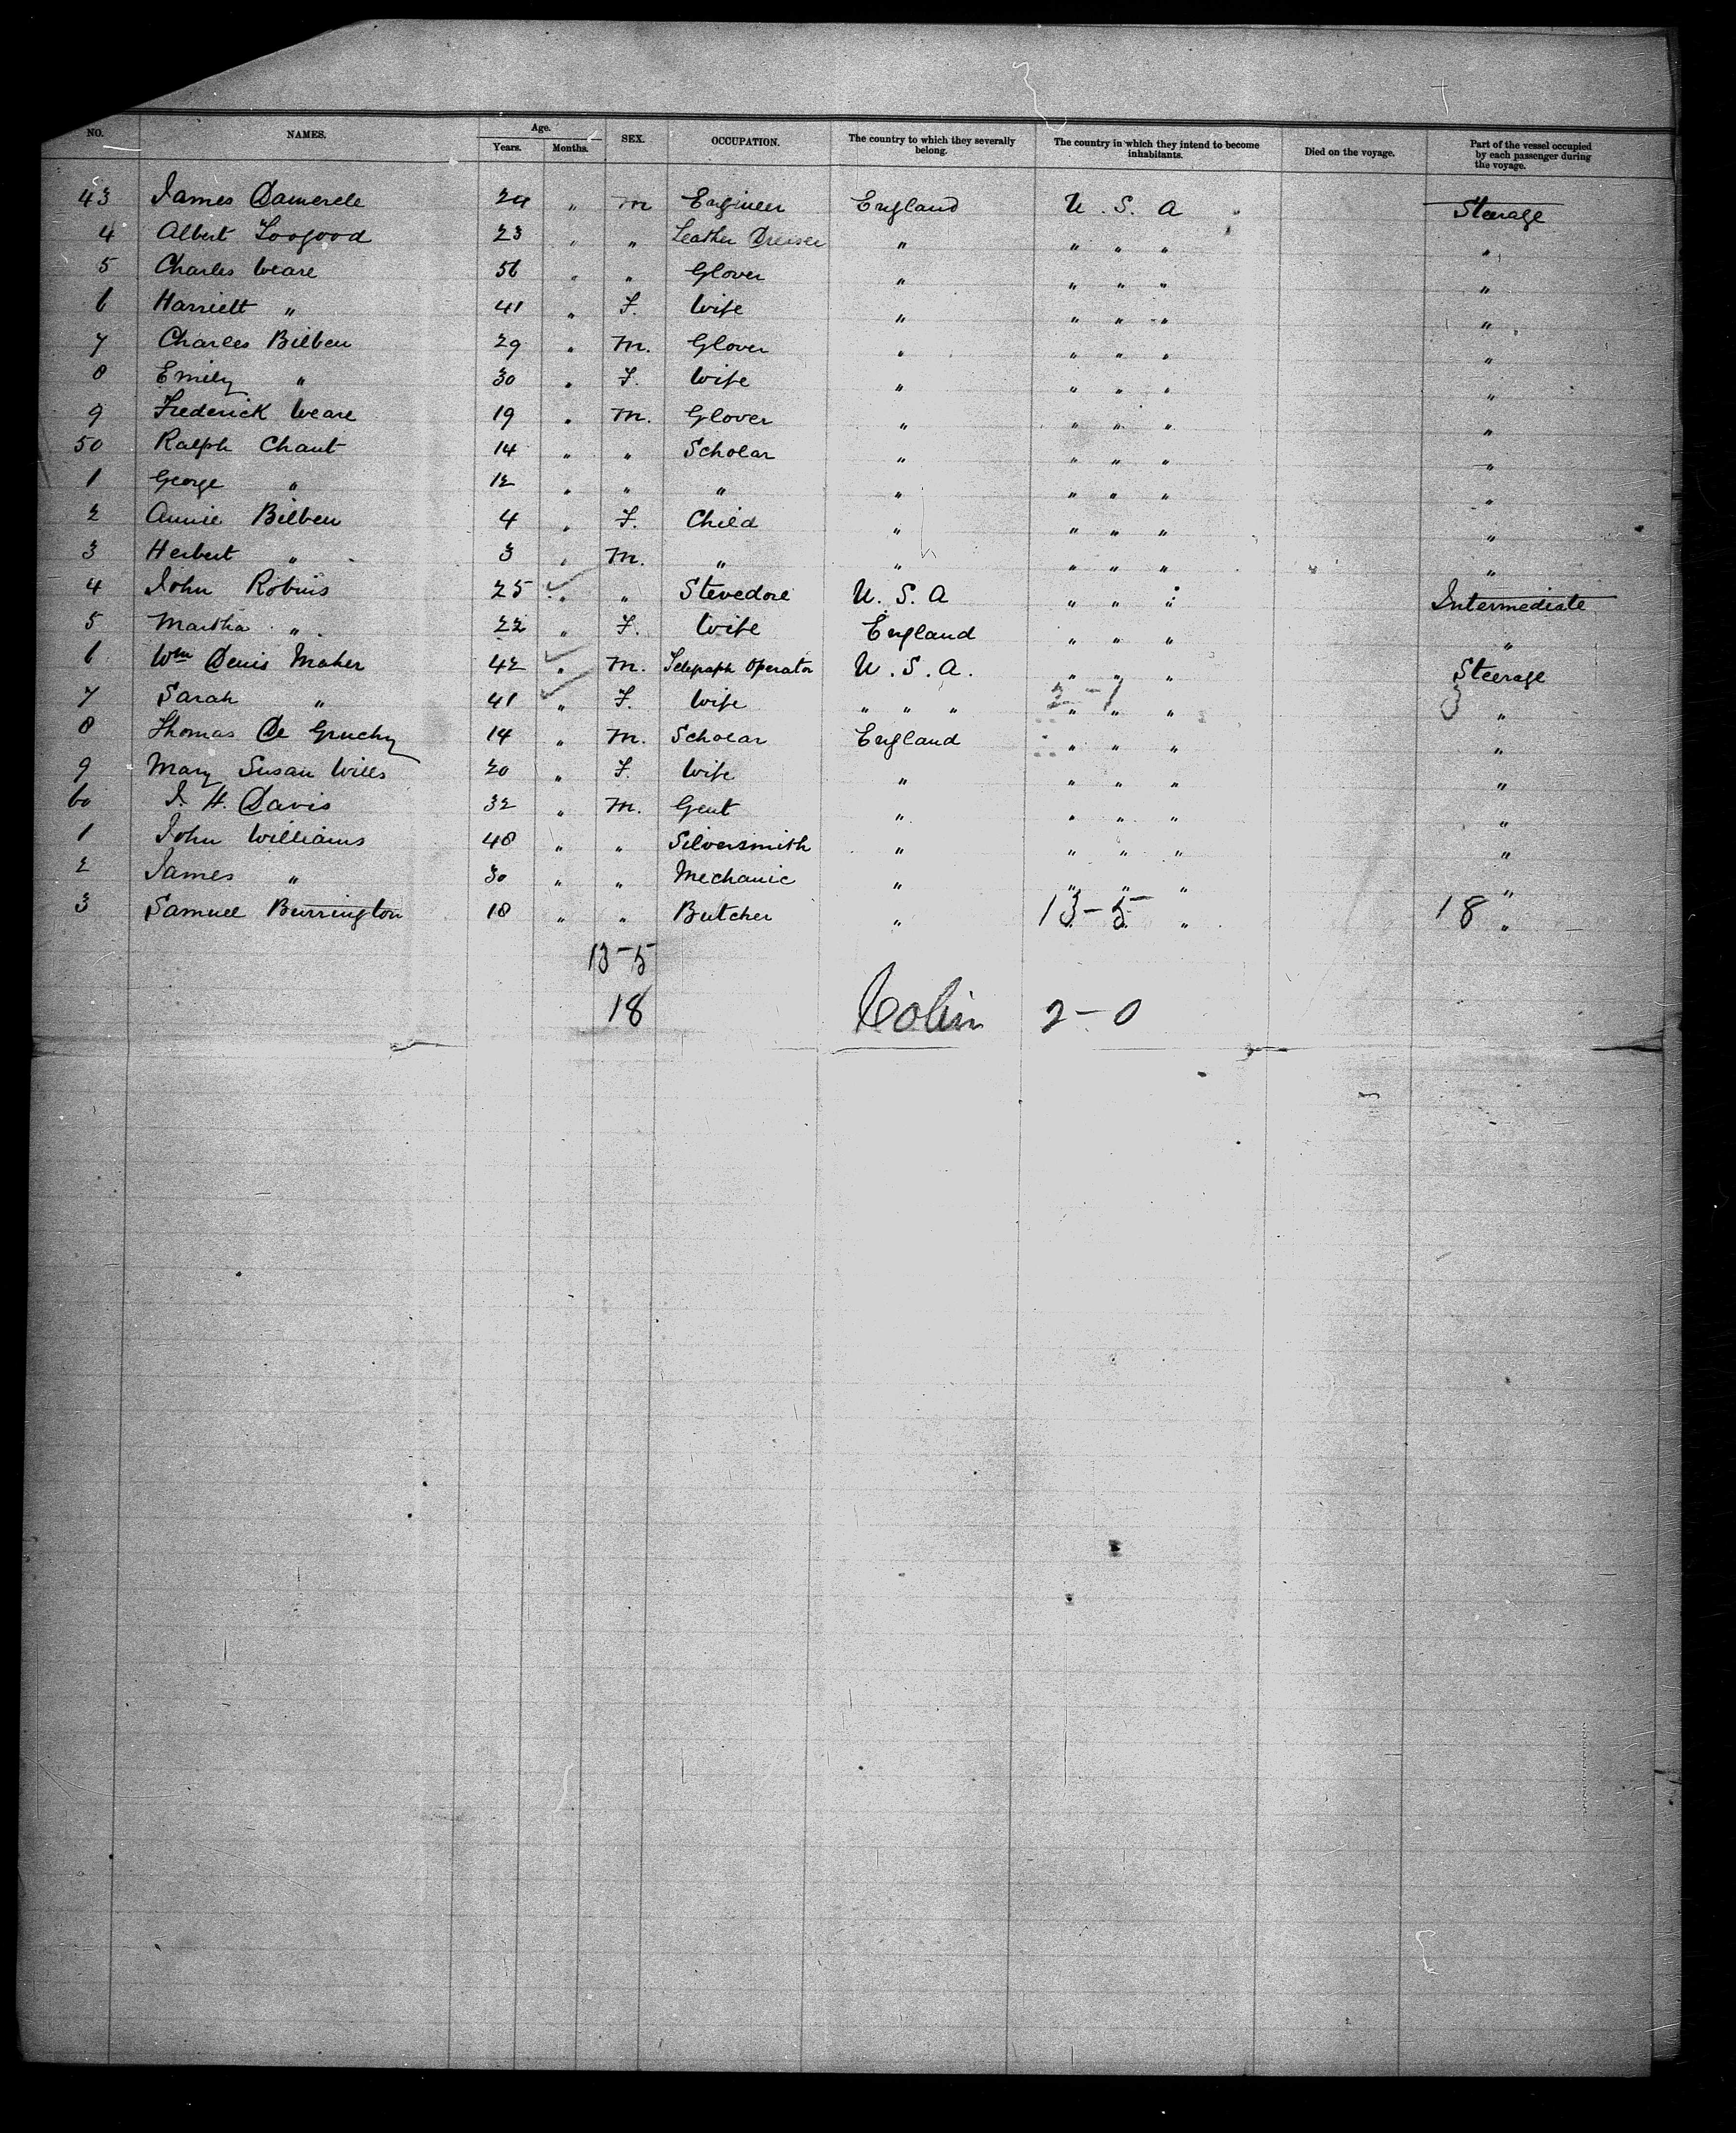 NO. NAMES. Age. Years. Months. SEX. OCCUPATION. The country to which they severally belong. The country in which they intend to become inhabitants. Died on the voyage. Part of the vessel occupied by each passenger during the voyage.
43 James Damerell 24 " m Engineer England U. S. A Steerage
4 Albert Toogood 23 " " Leather Dresser " " " " "
5 Charles Weare 56 " " Glover " " " " "
6 Harriett " 41 " F. Wife " " " " "
7 Charles Bilben 29 " M. Glover " " " " "
8 Emily " 30 " F. Wife " " " " "
9 Frederick Weare 19 " M. Glover " " " " "
50 Ralph Chant 14 " " Scholar " " " " "
1 George " 12 " " " " " " " "
2 Annie Bilben 4 " F. Child " " " " "
3 Herbert " 3 " M. " " " " " "
4 John Robins 25 " " Stevedore U. S. A " " " Intermediate
5 Martha " 22 " F. Wife England " " " "
6 Wm Denis Maher 42 " M. Telegraph Operator U. S. A. " " " Steerage
7 Sarah " 41 " F. Wife " " " 2-1 " " " 3 "
8 Thomas De Gruchy 14 " M. Scholar England " " " "
9 Mary Susan Wills 20 " F. Wife " " " " "
60 J. H. Davis 32 " M. Gent " " " " "
1 John Williams 48 " " Silversmith " " " " "
2 James " 30 " " Mechanic " " " " "
3 Samuel Burrington 18 " " Butcher " 13-5 " " " 18 "
13-5
18 2-0